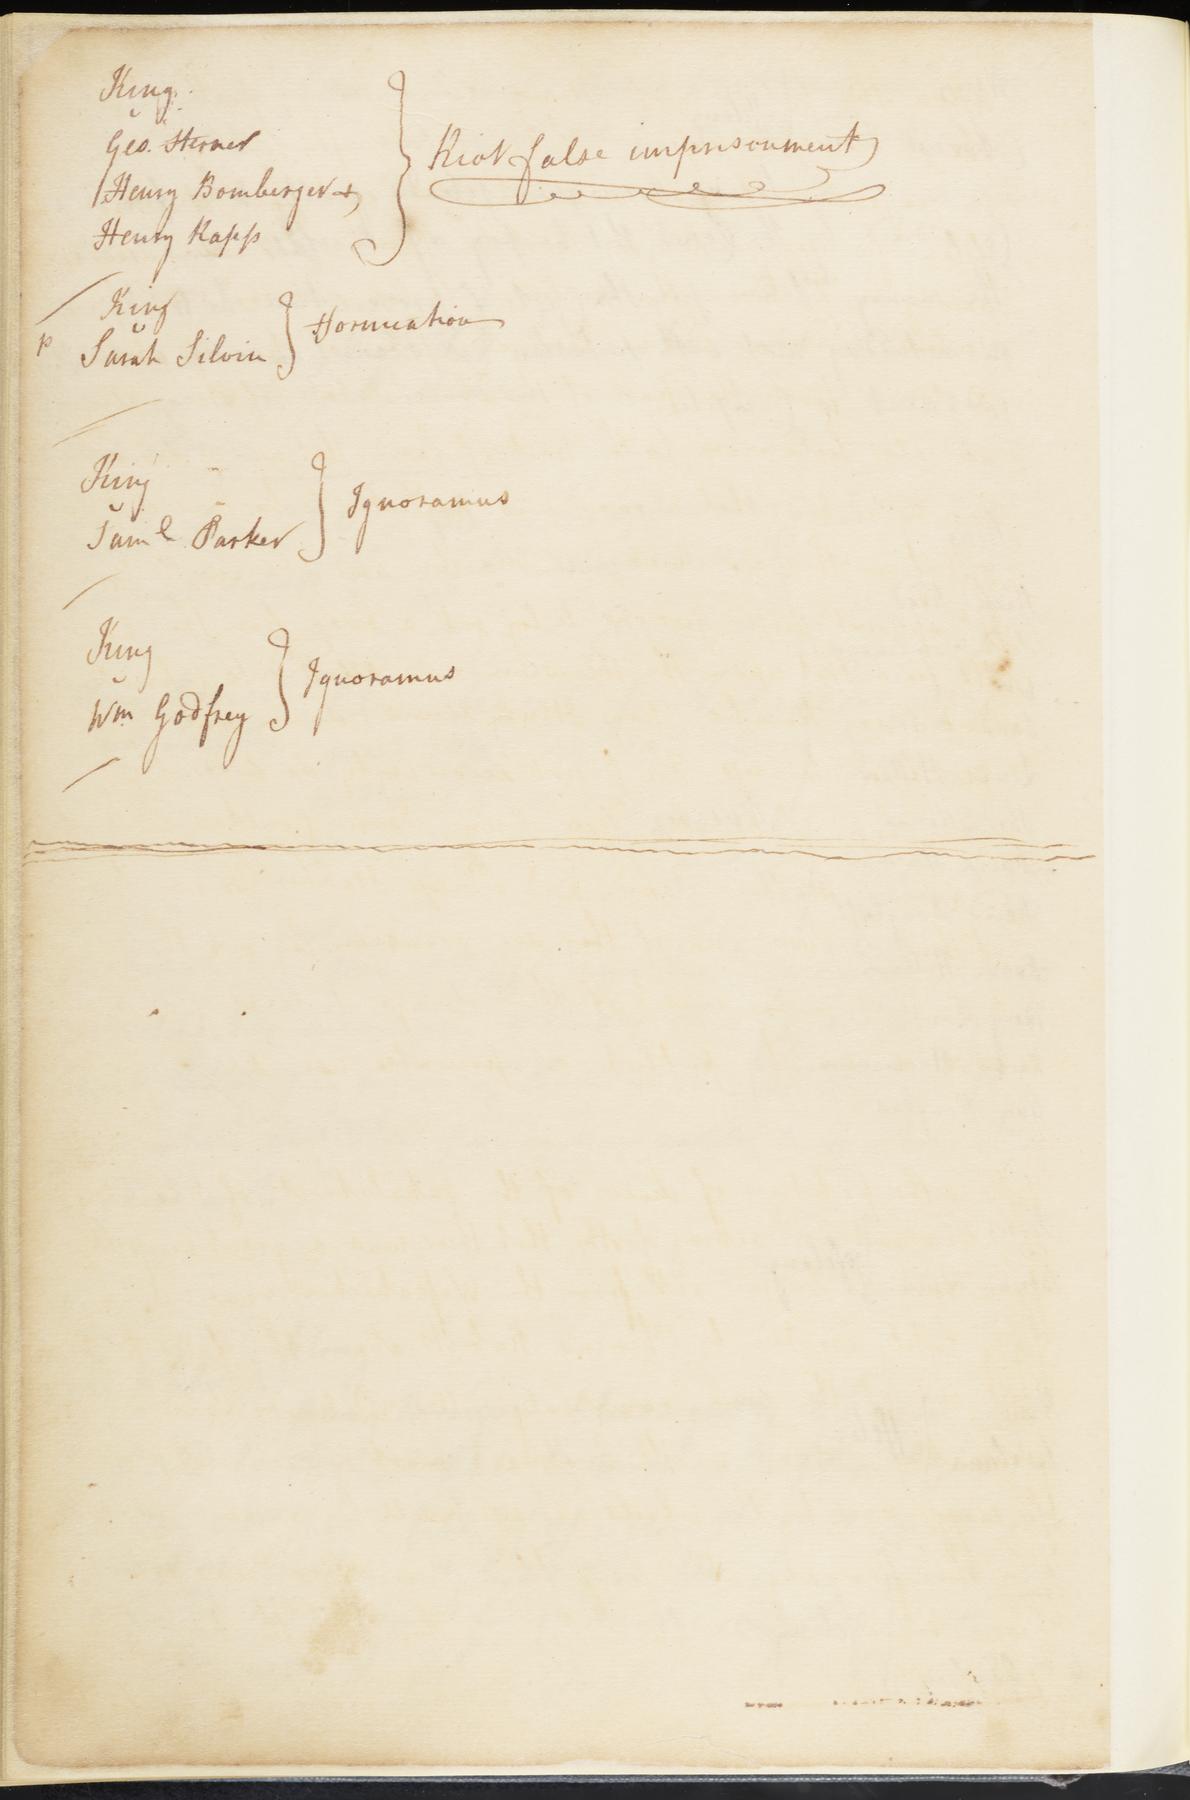 King
v
Geo. Sterner
Henry Bomberger &
Henry Rapp
} Riot false imprisonment
King
v
p Sarah Silvin
} Fornication
King
v
Saml Parker
} Ignoramus
King
v
Wm Godfrey
} Ignoramus